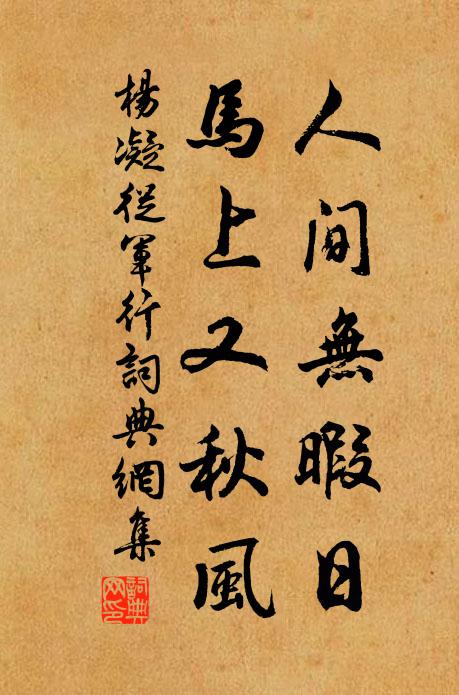 人間無暇日
馬上又秋風
楊凝從軍行詞典網集
詞典网印